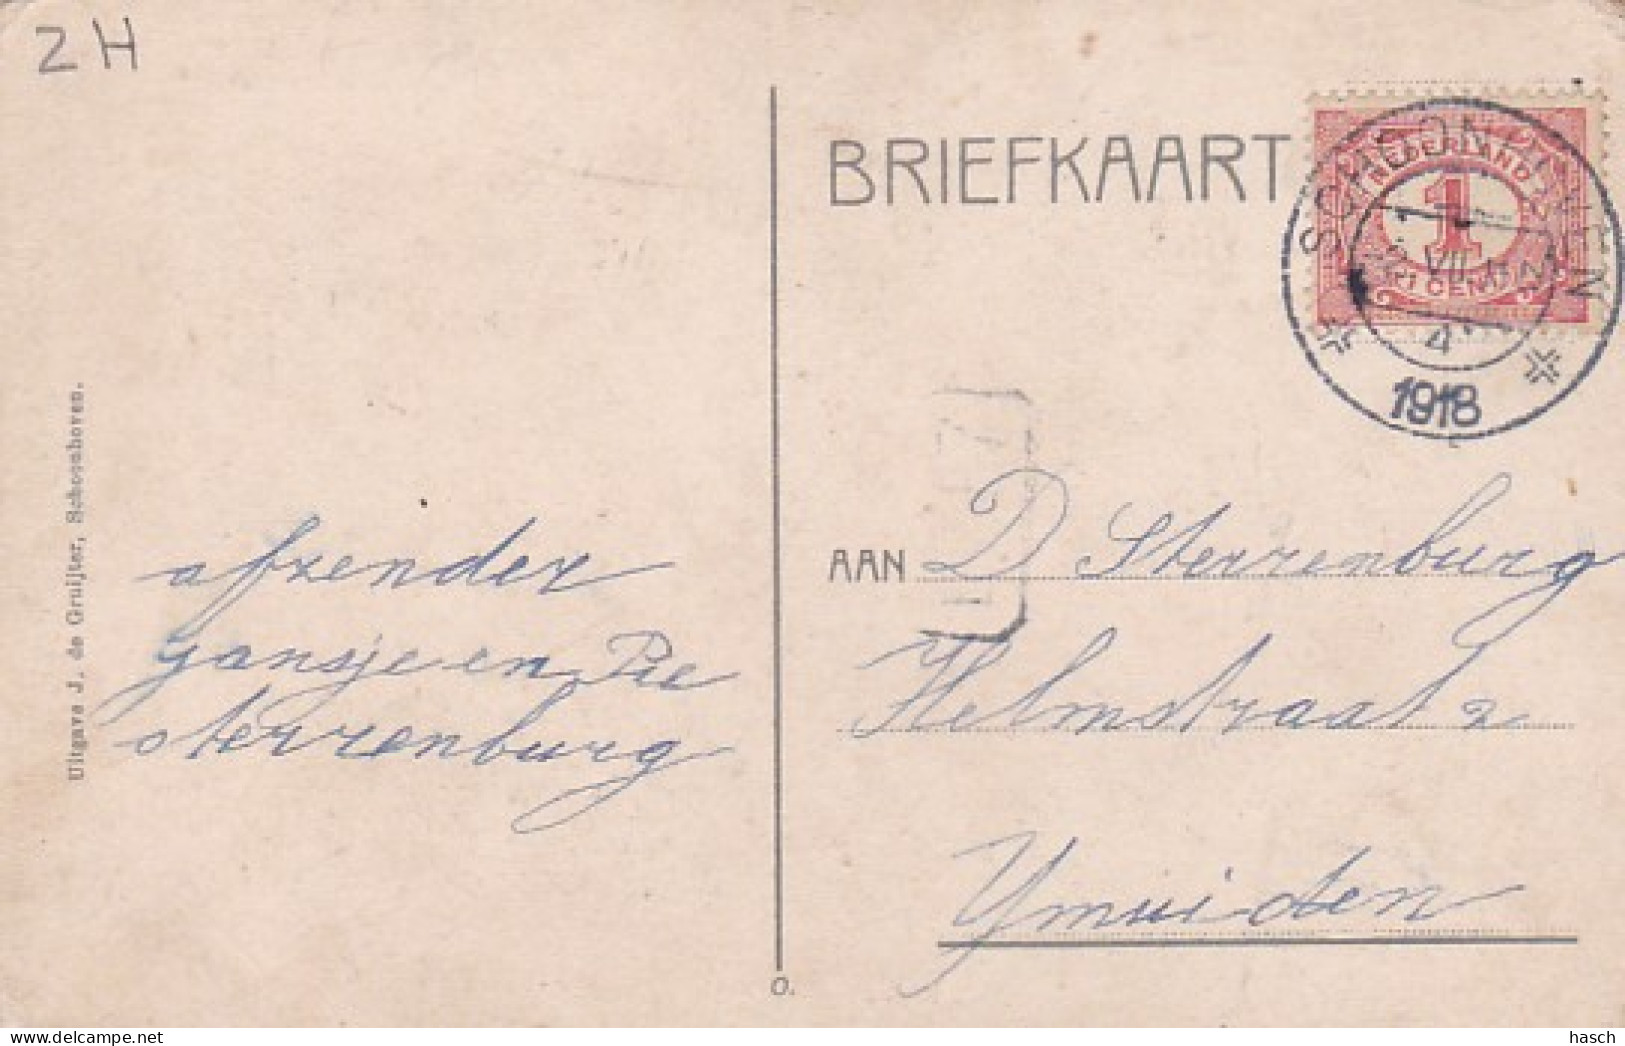 ZH
BRIEFKAART
NEDERLAND
1
CENT
SCHOONHOVEN
VII
4
1918
Uitgave J. de Gruijter, Schoonhoven.
afzender
Gansje en Pie
sterrenburg
AAN D Sterrenburg
Helmstraat 2
Ymuiden
O.
delcampe.net
hasch